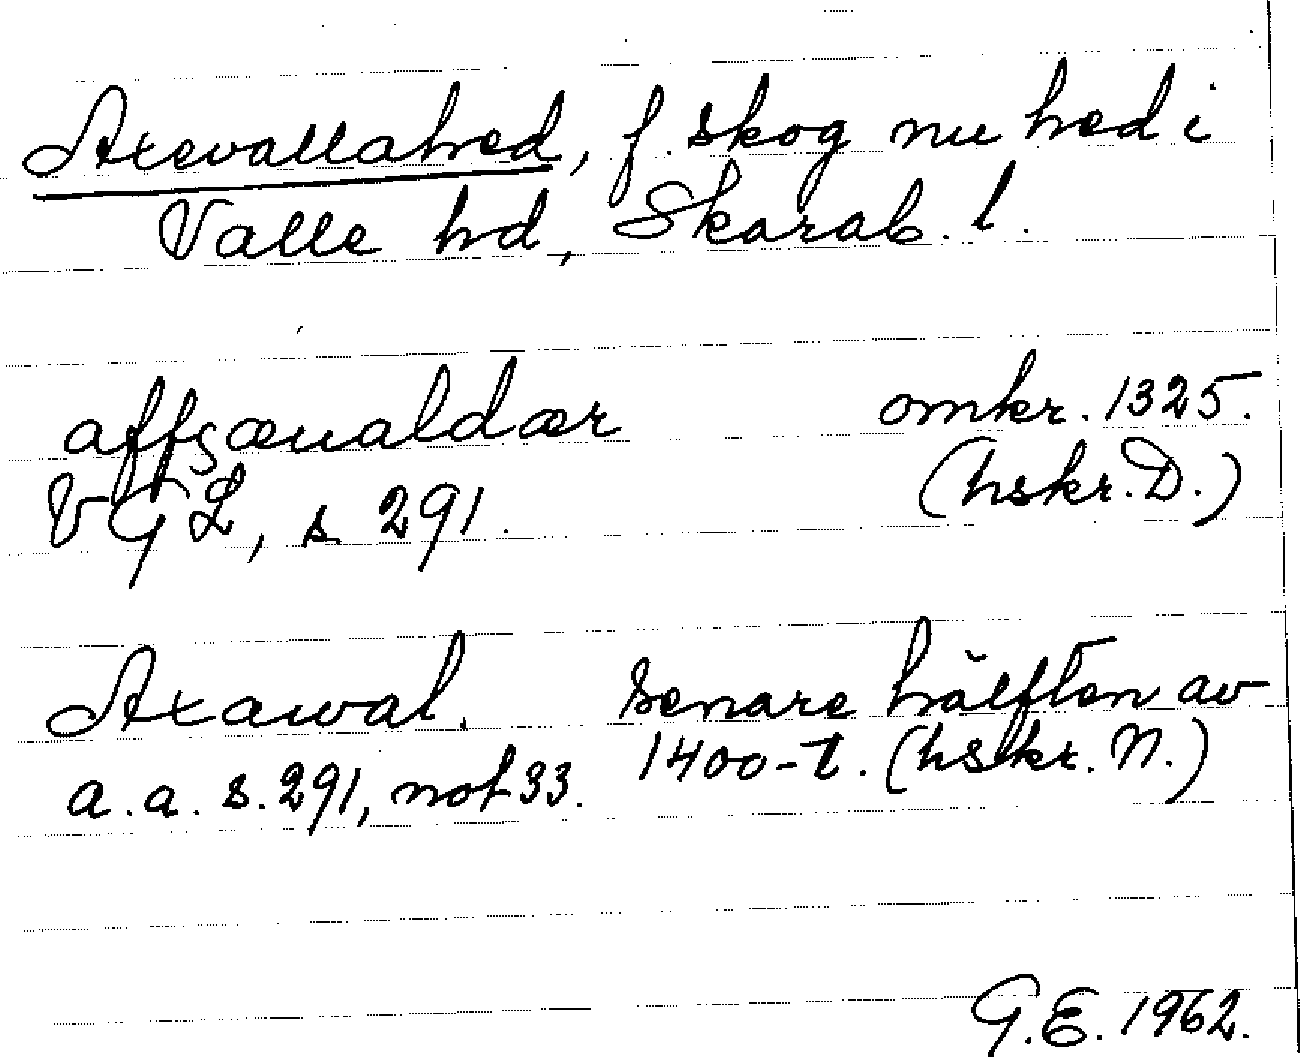 Axevallahed, f. skog nu hed i
Valle hd, Skarab. l.
affsæualdær omkr. 1325.
VGL, s. 291. (hskr. D.)
Axawal. senare hälften av
a.a. s. 291, not 33. 1400-t. (hskr. N.)
G.E. 1962.